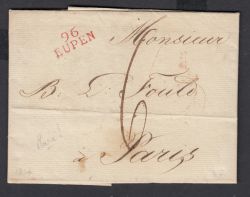 96
EUPEN
Monsieur
B. D. Fould
6
à Paris